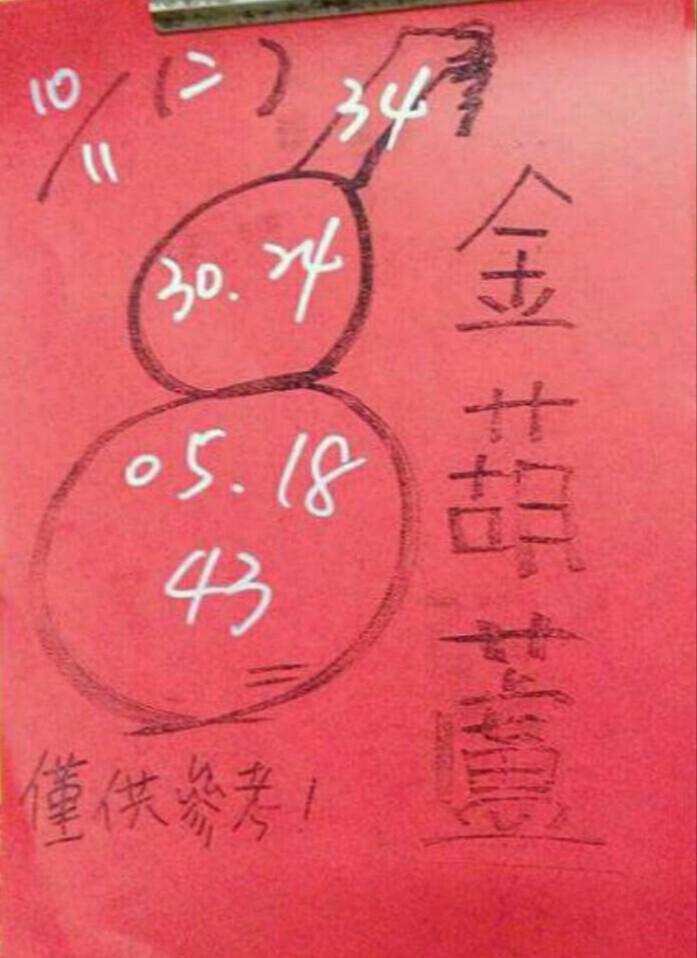 10/11 (二)
34
30.24
05.18
43
金葫蘆
僅供參考！